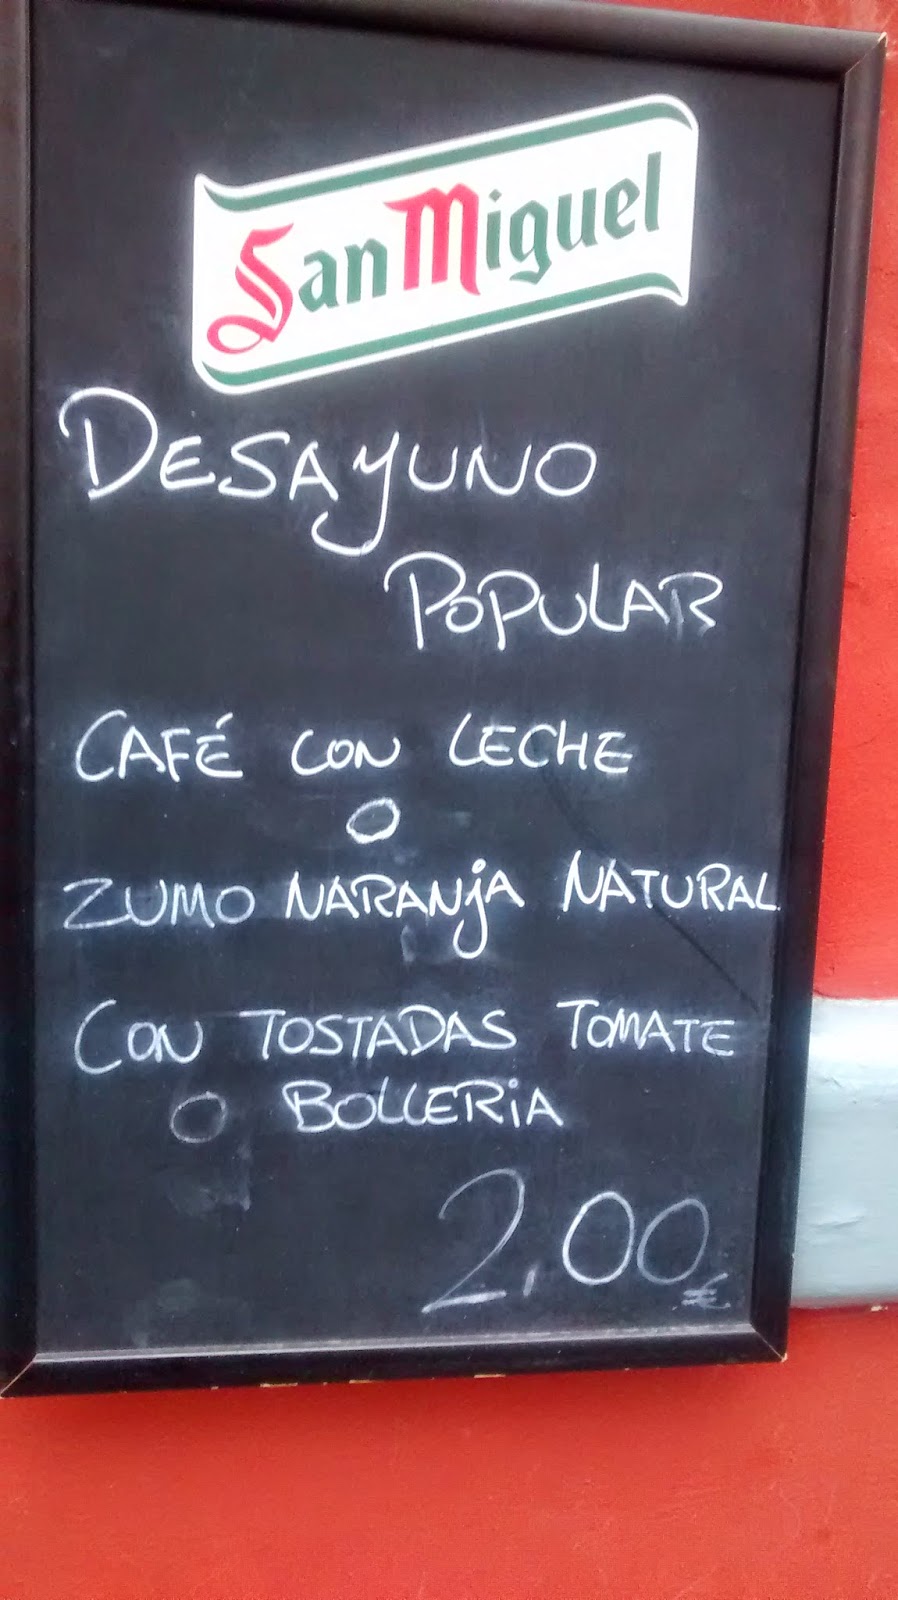 San Miguel
DESAYUNO
POPULAR
CAFÉ CON LECHE
O
ZUMO NARANJA NATURAL
CON TOSTADAS TOMATE
O BOLLERIA
2,00€